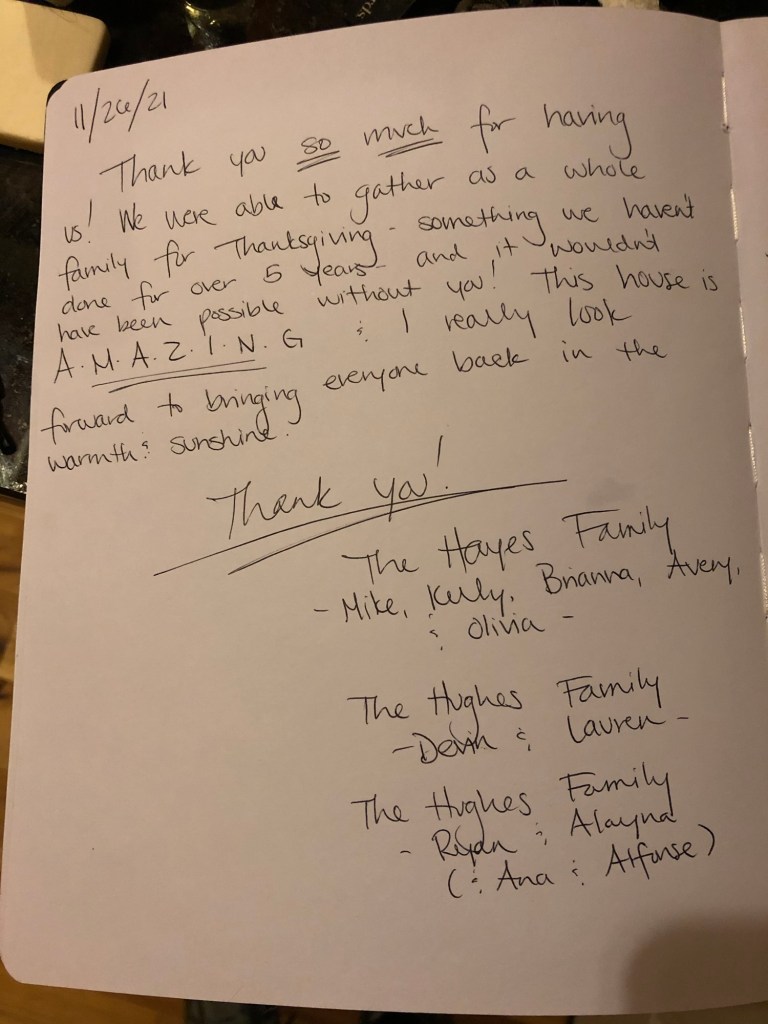 11/26/21
Thank you so much for having
us! We were able to gather as a whole
family for Thanksgiving - something we haven't
done for over 5 years - and it wouldn't
have been possible without you! This house is
A.M.A.Z.I.N.G & I really look
forward to bringing everyone back in the
warmth & sunshine.
Thank you!
The Hayes Family
- Mike, Kelly, Brianna, Avery,
& Olivia -
The Hughes Family
- Devin & Lauren -
The Hughes Family
- Ryan & Alayna
(& Ana & Alfonse)